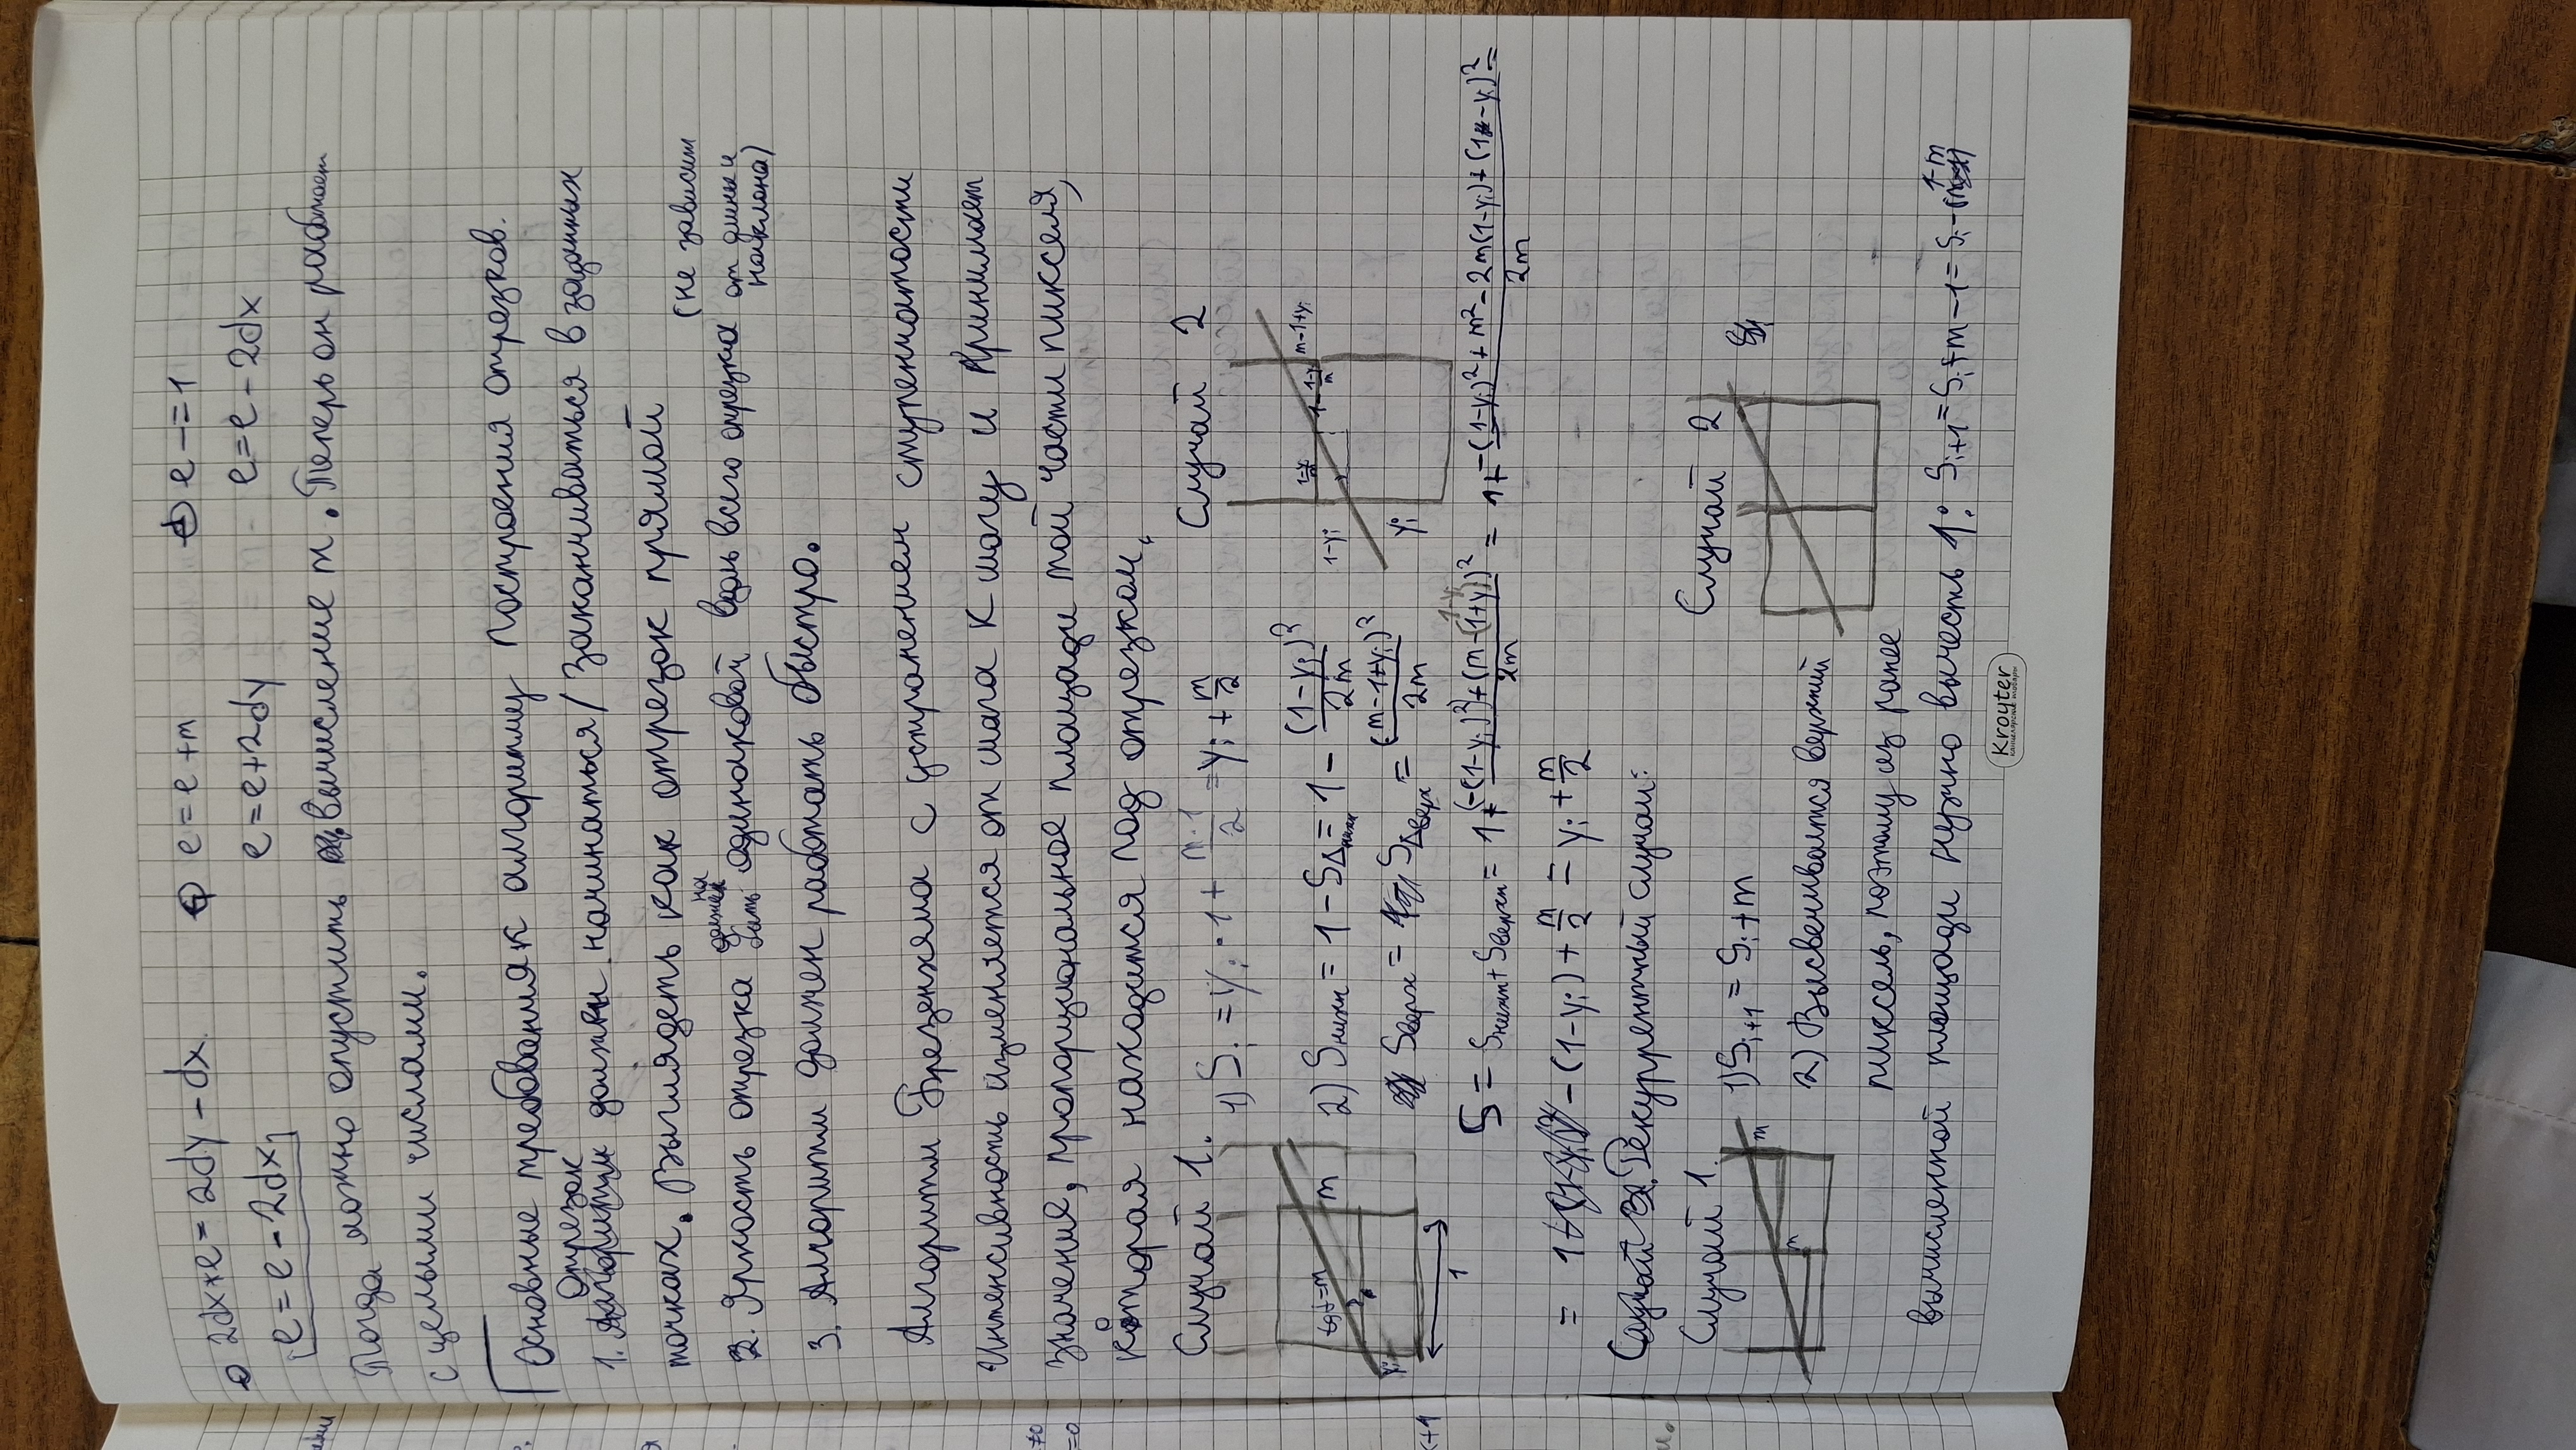 2dx*e = 2dy - dx
e = e + m
e -= 1
e = e - 2dx
e = e + 2dy
e = e - 2dx
Тогда можно опустить вычисление m. Теперь он работает
с целыми числами.
Основные требования к алгоритму построения отрезков.
Отрезок
1. Алгоритм должен начинаться/заканчиваться в заданных
точках. Выглядеть как отрезок прямой
2. Яркость отрезка должна быть одинаковой вдоль всего отрезка (не зависит
от длины и
наклона)
3. Алгоритм должен работать быстро.
Алгоритм Брезенхема с устранением ступенчатости
Интенсивность изменяется от шага к шагу и принимает
значение, пропорциональное площади той части пикселя,
которая находится под отрезком.
Случай 1.
1) Sᵢ = yᵢ · 1 + m·1/2 = yᵢ + m/2
Случай 2
tgα = m
m
yᵢ
1
2) Sнижн = 1 - SΔнижн = 1 - (1-yᵢ)²/2m
Sверх = SΔверх = (m-1+yᵢ)²/2m
1-yᵢ
1-yᵢ/m
1 - 1-yᵢ/m
m-1+yᵢ
yᵢ
S = Sнижн + Sверхн = 1 + (-(1-yᵢ)²)+(m-(1-yᵢ))²/2m = 1 + -(1-yᵢ)² + m² - 2m(1-yᵢ) + (1-yᵢ)²/2m =
= 1 - (1-yᵢ) + m/2 = yᵢ + m/2
Случай 3. Рекуррентный случай:
Случай 1.
m
m
1) Sᵢ₊₁ = Sᵢ + m
Случай 2
2) Высвечивается верхний
пиксель, поэтому из ранее
вычисленной площади нужно вычесть 1: Sᵢ₊₁ = Sᵢ + m - 1 = Sᵢ - (1-m)
Kroyter
канцелярские товары
≠0
=0